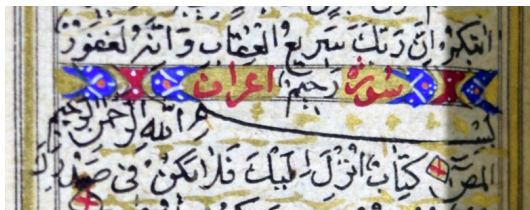 اتیكم اِنَّ رَبَّكَ سَرِيعُ الْعِقَابِ وَاِنَّهُ لَغَفُورٌ
سُورَةُ رَحِيمٌ اعراف
بسم الله الرحمن الرحيم
المص كِتَابٌ اُنْزِلَ اِلَيْكَ فَلَا يَكُنْ فِي صَدْرِكَ